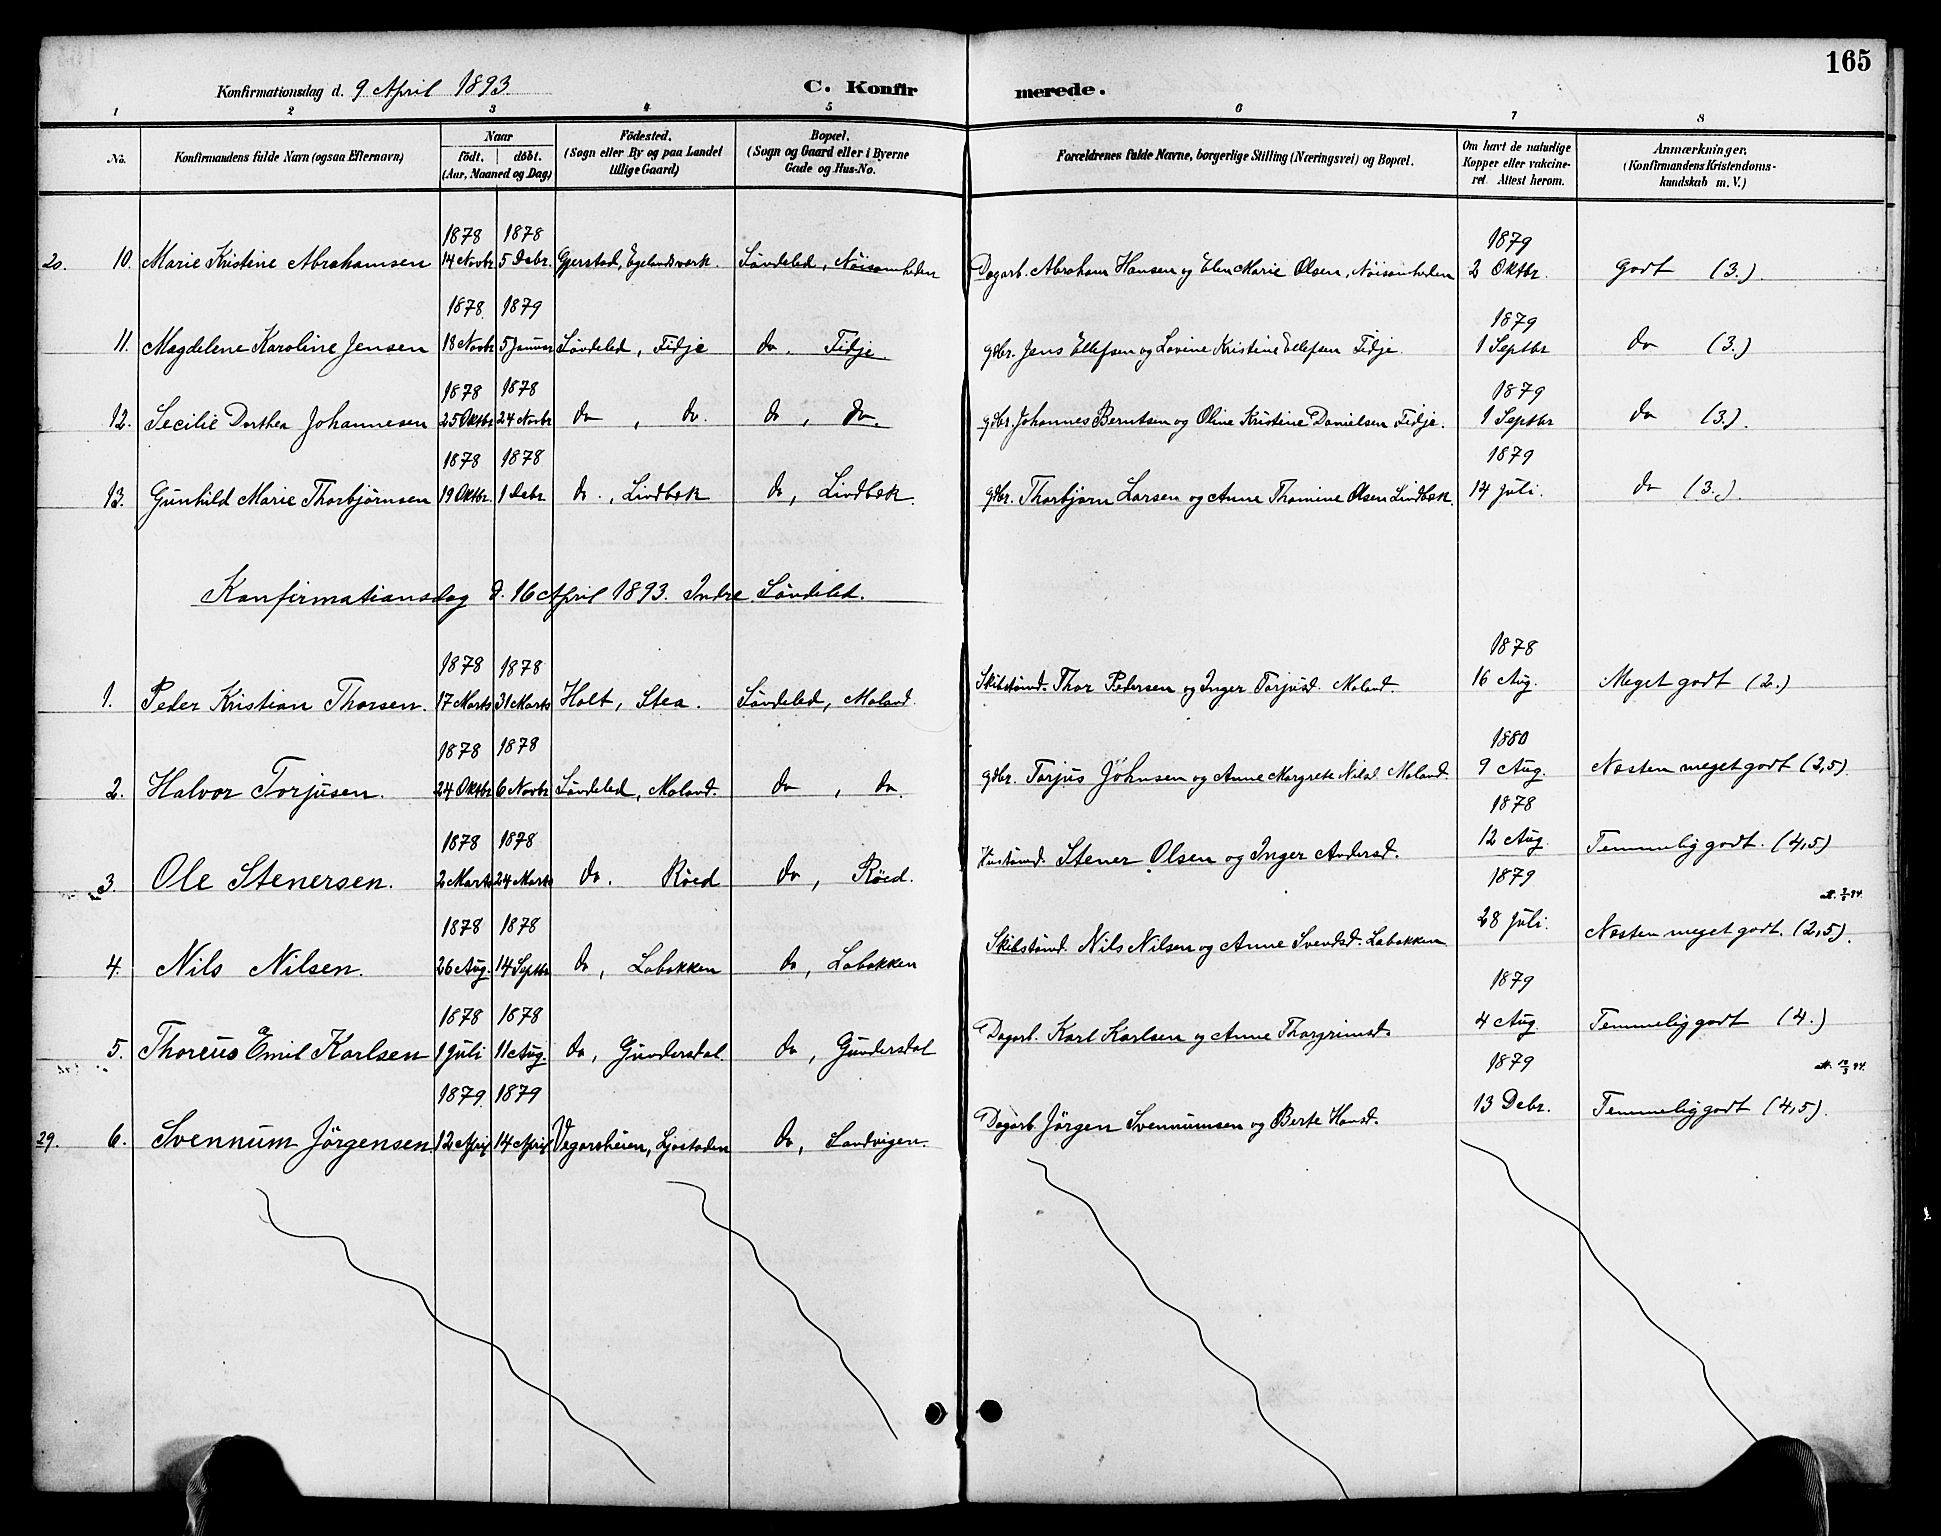 165
Konfirmationsdag d. 9 April 1893. C. Konfirmerede.
1 2 3 4 5 6 7 8
No. Konfirmandens fulde Navn (ogsaa Efternavn) Naar födt. döbt. (Aar, Maaned og Dag) Födested. (Sogn eller By og paa Landet tillige Gaard) Bopæl. (Sogn og Gaard eller i Byerne Gade og Hus-No. Forældrenes fulde Navne, borgerlige Stilling (Næringsvei) og Bopæl. Om havt de naturlige Kopper eller vakcineret. Attest herom. Anmærkninger, (Konfirmandens Kristendomskundskab m. V.)
1878 1878 1879
20. 10. Marie Kristine Abrahamsen 14 Novbr 5 Debr. Gjerstad, Egelandsverk. Söndeled, Nöisomheden Dagarb. Abraham Hansen og Elen Marie Olsen, Nöisomheden 2 Oktbr. Godt (3.)
1878. 1879 1879
11. Magdelene Karoline Jensen 18 Novbr 5 Januar Söndeled, Fidje do. Fidje. gdbr. Jens Ellefsen og Lovine Kristine Ellefsen Fidje. 1 Septbr do (3.)
1878 1878 1879
12. Secilie Dorthea Johannesen 25 Oktbr 24 Novbr do, do. do, do. gdbr. Johannes Berntsen og Oline Kristine Danielsen Fidje. 1 Septbr do (3.)
1878 1878 1879
13. Gunhild Marie Thorbjørnsen 19 Oktbr. 1 Debr do., Lindbæk do, Lindbæk. gdbr. Thorbjørn Larsen og Anne Thomine Olsen Lindbæk. 14 Juli. do (3.)
Konfirmationsdag d. 16 April 1893. Indre Söndeled.
1878 1878 1878
1. Peder Kristian Thorsen. 17 Marts 31 Marts Holt, Stea. Söndeled, Moland. Skibstömd. Thor Pedersen og Inger Torjusd. Moland. 16 Aug. Meget godt (2.)
1878 1878 1880
2. Halvor Torjusen. 24 Oktbr 6 Novbr Söndeled, Moland. do, do. gdbr. Torjus Johnsen og Anne Margrete Nilsd. Moland. 9 Aug. Næsten meget godt (2,5)
1878 1878 1878
3. Ole Stenersen. 2 Marts 24 Marts do. Röed do, Röed. Hustömd. Stener Olsen og Inger Andersd. 12 Aug. Temmelig godt. (4,5)
1878 1878 1879
4. Nils Nilsen. 26 Aug. 14 Septbr do, Lobakken do, Lobakken Skibstömd. Nils Nilsen og Anne Svendsd. Lobakken 28 Juli. Næsten meget godt. (2,5).
1878 1878 1879
5. Thoreus Emil Karlsen 1 Juli 11 Aug. do, Gundersdal do, Gundersdal Dagarb. Karl Karlsen og Anne Thorgrimsd. 4 Aug. Temmelig godt (4.)
1879. 1879 1879
29. 6. Svennum Jörgensen. 12 April 14 April Vegarsheien, Ljostaden do, Sandvigen. Dagarb. Jörgen Svennumsen og Berte Hansd. 13 Debr. Temmelig godt (4,5).